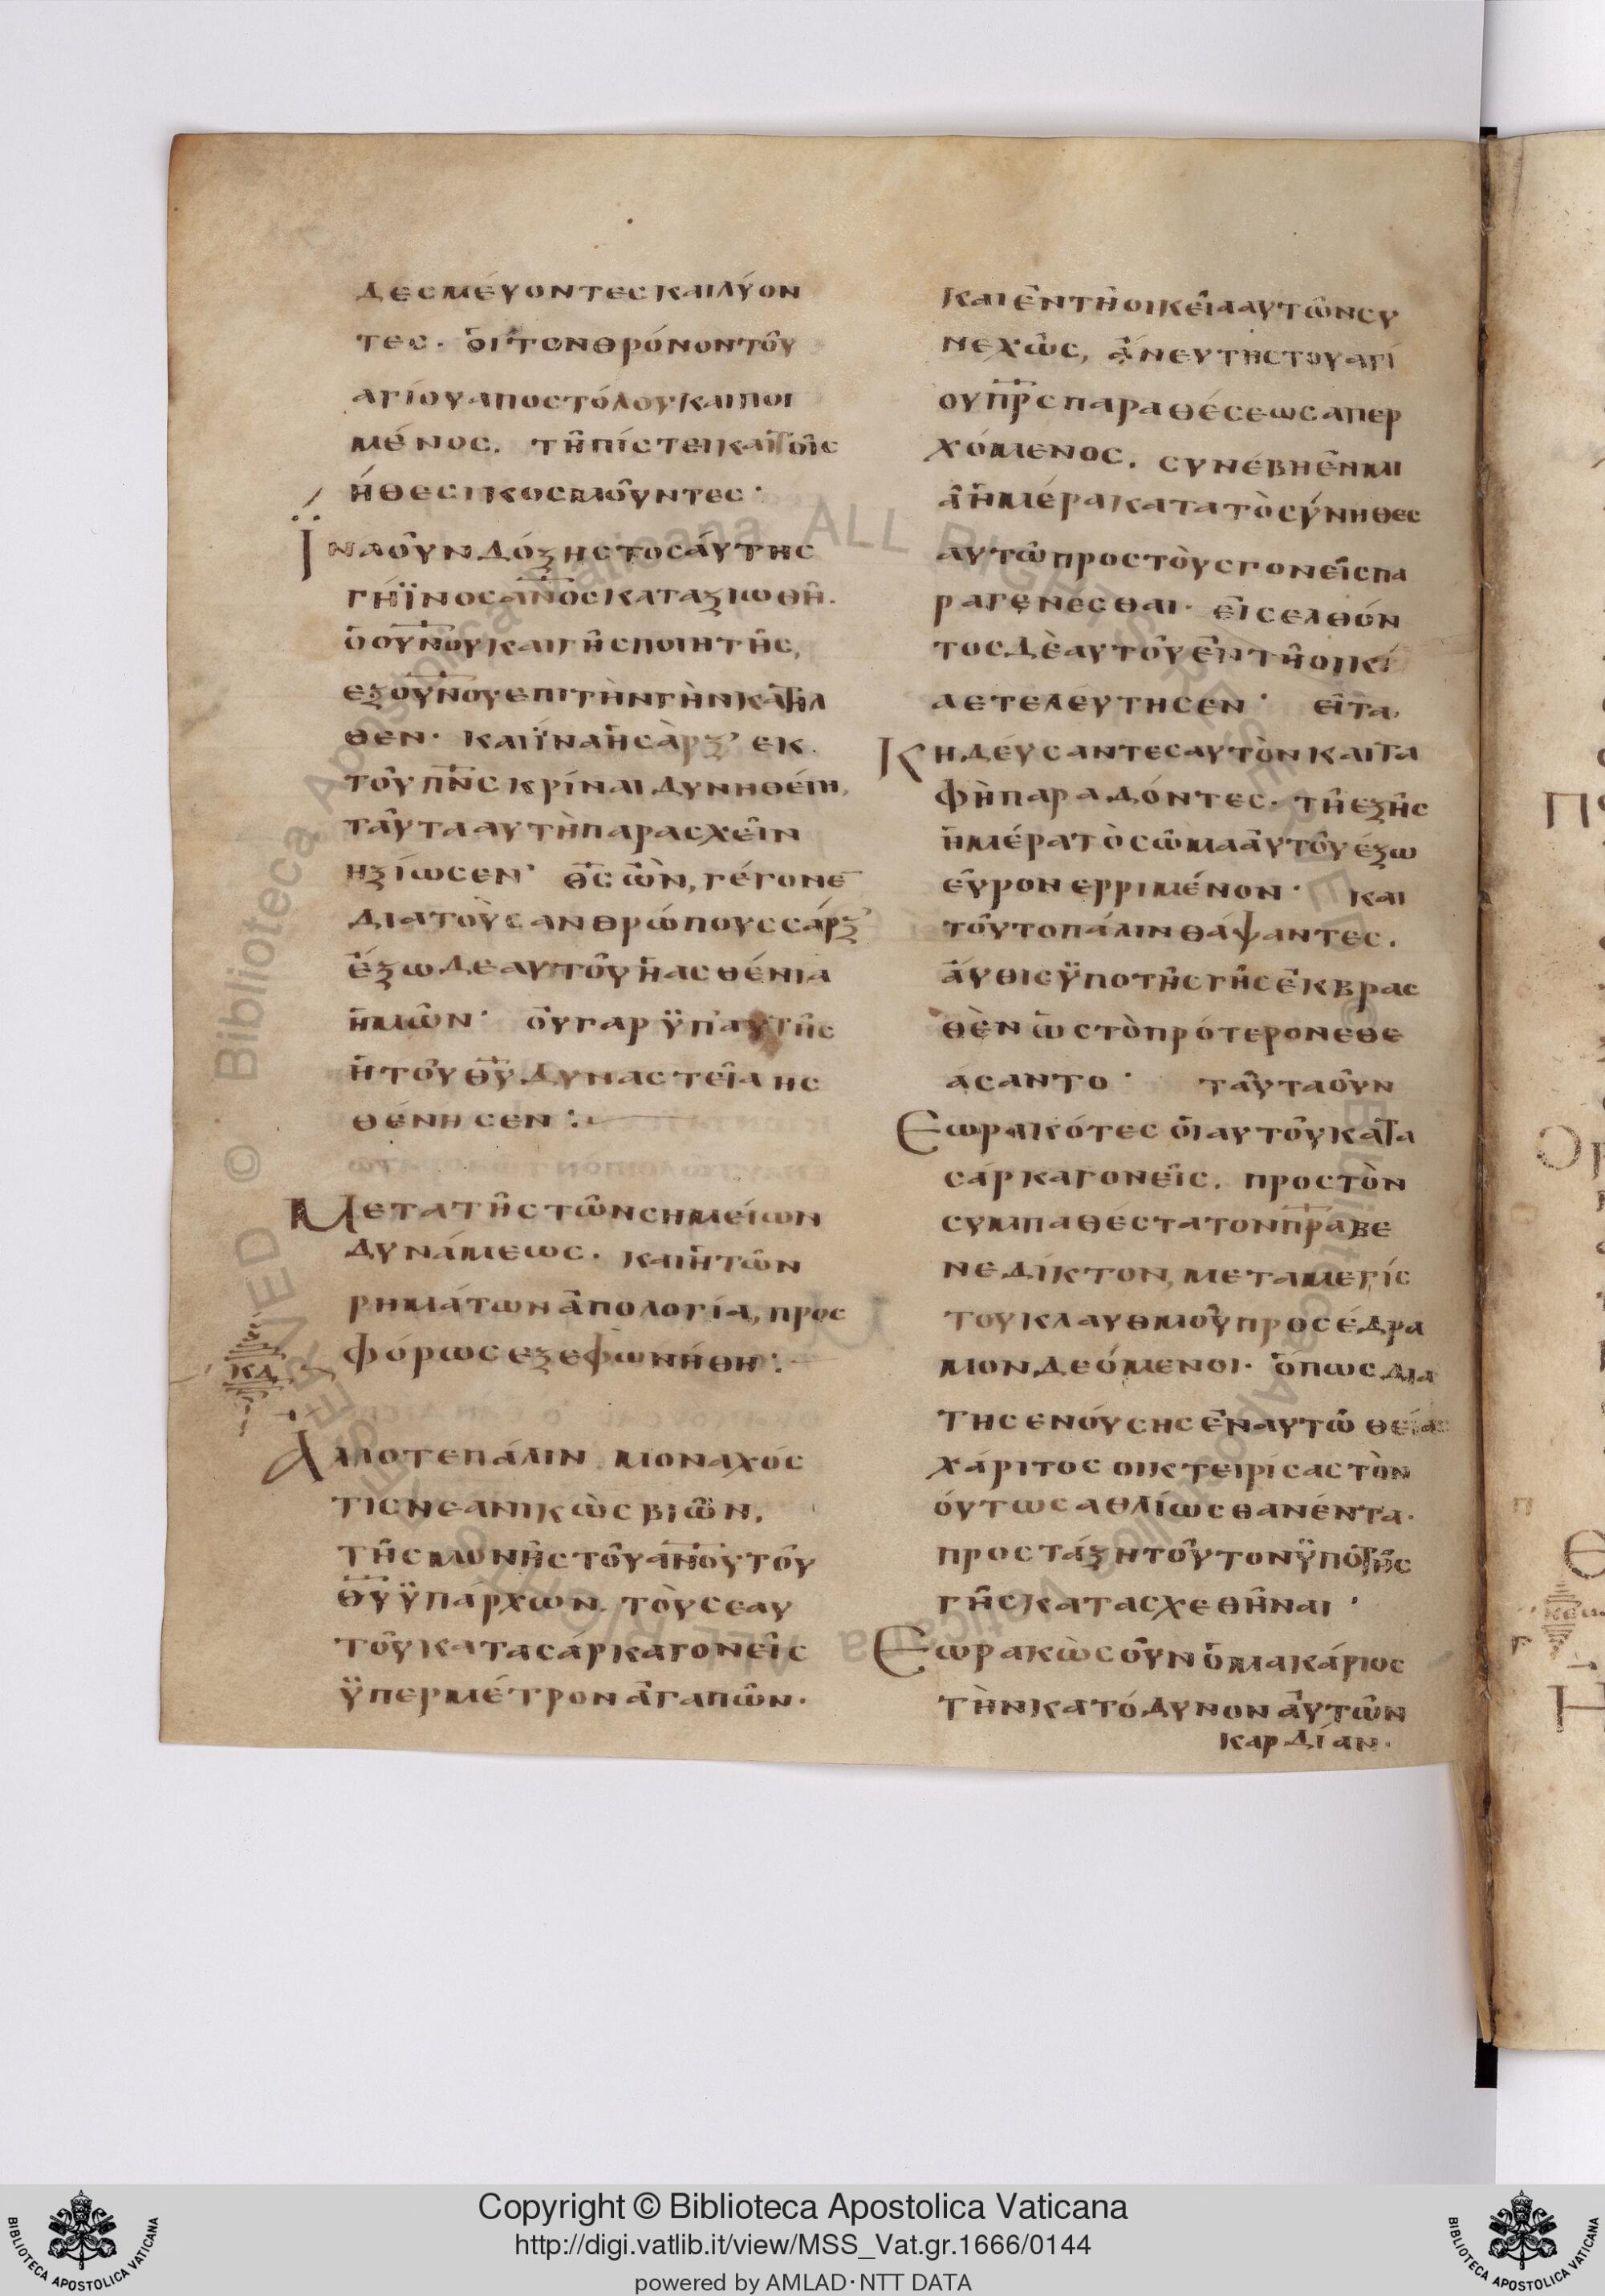 δεσμέυοντεσκαιλύον
τεσ. ὁιτονθρόνοντοῦ
αγίουαποστόλουκαιποι
μένοσ. τῆπίστεικαιτοῖσ
ήθεσικοσμοῦντεσ·
Ϊναοῦνδόξηστοσάυτησ
γήϊνοσαν̅ο̅σκαταξιωθῆ.
ὁου̅ν̅ουκαιγῆσποιητῆσ,
εξου̅ν̅ουεπιτὴνγὴνκατῆλ
θεν· καιϊναἡσὰρξ εκ
τοῦπ̅ν̅σκρίναιδυνηθείη,
ταῦτααυτὴπαρασχεῖν
ηξίωσεν· θ̅σ̅ὼν, γέγονε̅
διατοὺσανθρώπουσσάρξ
έξωδεαυτοῦἡασθένια
ἡμῶν· ὀυγαρϋπ'αυτῆσ
ἡτοῦθ̅υ̅δυναστεῖαησ
θένησεν:
Μετατῆστῶνσημείων
δυνάμεωσ. καιἡτῶν
ρημάτωναπολογία, προσ
φόρωσεξεφωνήθη:
κδ
Αλλοτεπάλιν μοναχόσ
τισνεανικὼσβιῶν.
τῆσμωνῆστοῦαν̅ο̅υτοῦ
θ̅υ̅ϋπάρχων. τὸυσεαυ
τοῦκατασάρκαγονεῖσ
ϋπερμέτροναγαπῶν·
καιεντῆοικείααυτῶνσυ
νεχῶσ, άνευτηστουαγί
ουπ̅ρ̅σπαραθέσεωσαπερ
χόμενοσ. συνέβηενμι
ᾶἡμέρακατατὸσύνηθεσ
αυτῶπροστὸυσγονεῖσπα
ραγενέσθαι· εισελθόν
τοσδὲαυτοῦεντῆοικί
αετελέυτησεν· εῖτα,
Κηδέυσαντεσαυτὸνκαιτα
φὴπαραδόντεσ. τῆεξῆσ
ἡμέρατὸσῶμααυτοῦέξω
εῦρονερριμένον· και
τοῦτοπάλινθάψαντεσ.
άυθισϋποτῆσγῆσεκβρασ
θὲνὡστὸπρότερονεθε
άσαντο· ταῦταοῦν
Εωρακότεσὁιαυτοῦκατα
σάρκαγονεῖσ. προστὸν
συμπαθέστατονπ̅ρ̅αβε
νεδίκτον, μεταμεγίσ
τουκλαυθμοῦπροσέδρα
μονδεόμενοι· ὅπωσδια
τησενόυσησεναυτῶθείασ
χάριτοσοικτειρίσαστὸν
ούτωσαθλίωσθανέντα·
προστάξητοῦτονϋπὸτῆσ
γῆσκατασχεθῆναι·
Εωρακὼσοῦνὁμακάριοσ
τὴνκατόδυνοναυτῶν
καρδίαν·
Copyright © Biblioteca Apostolica Vaticana
http://digi.vatlib.it/view/MSS_Vat.gr.1666/0144
powered by AMLAD·NTT DATA
BIBLIOTECA APOSTOLICA VATICANA
BIBLIOTECA APOSTOLICA VATICANA